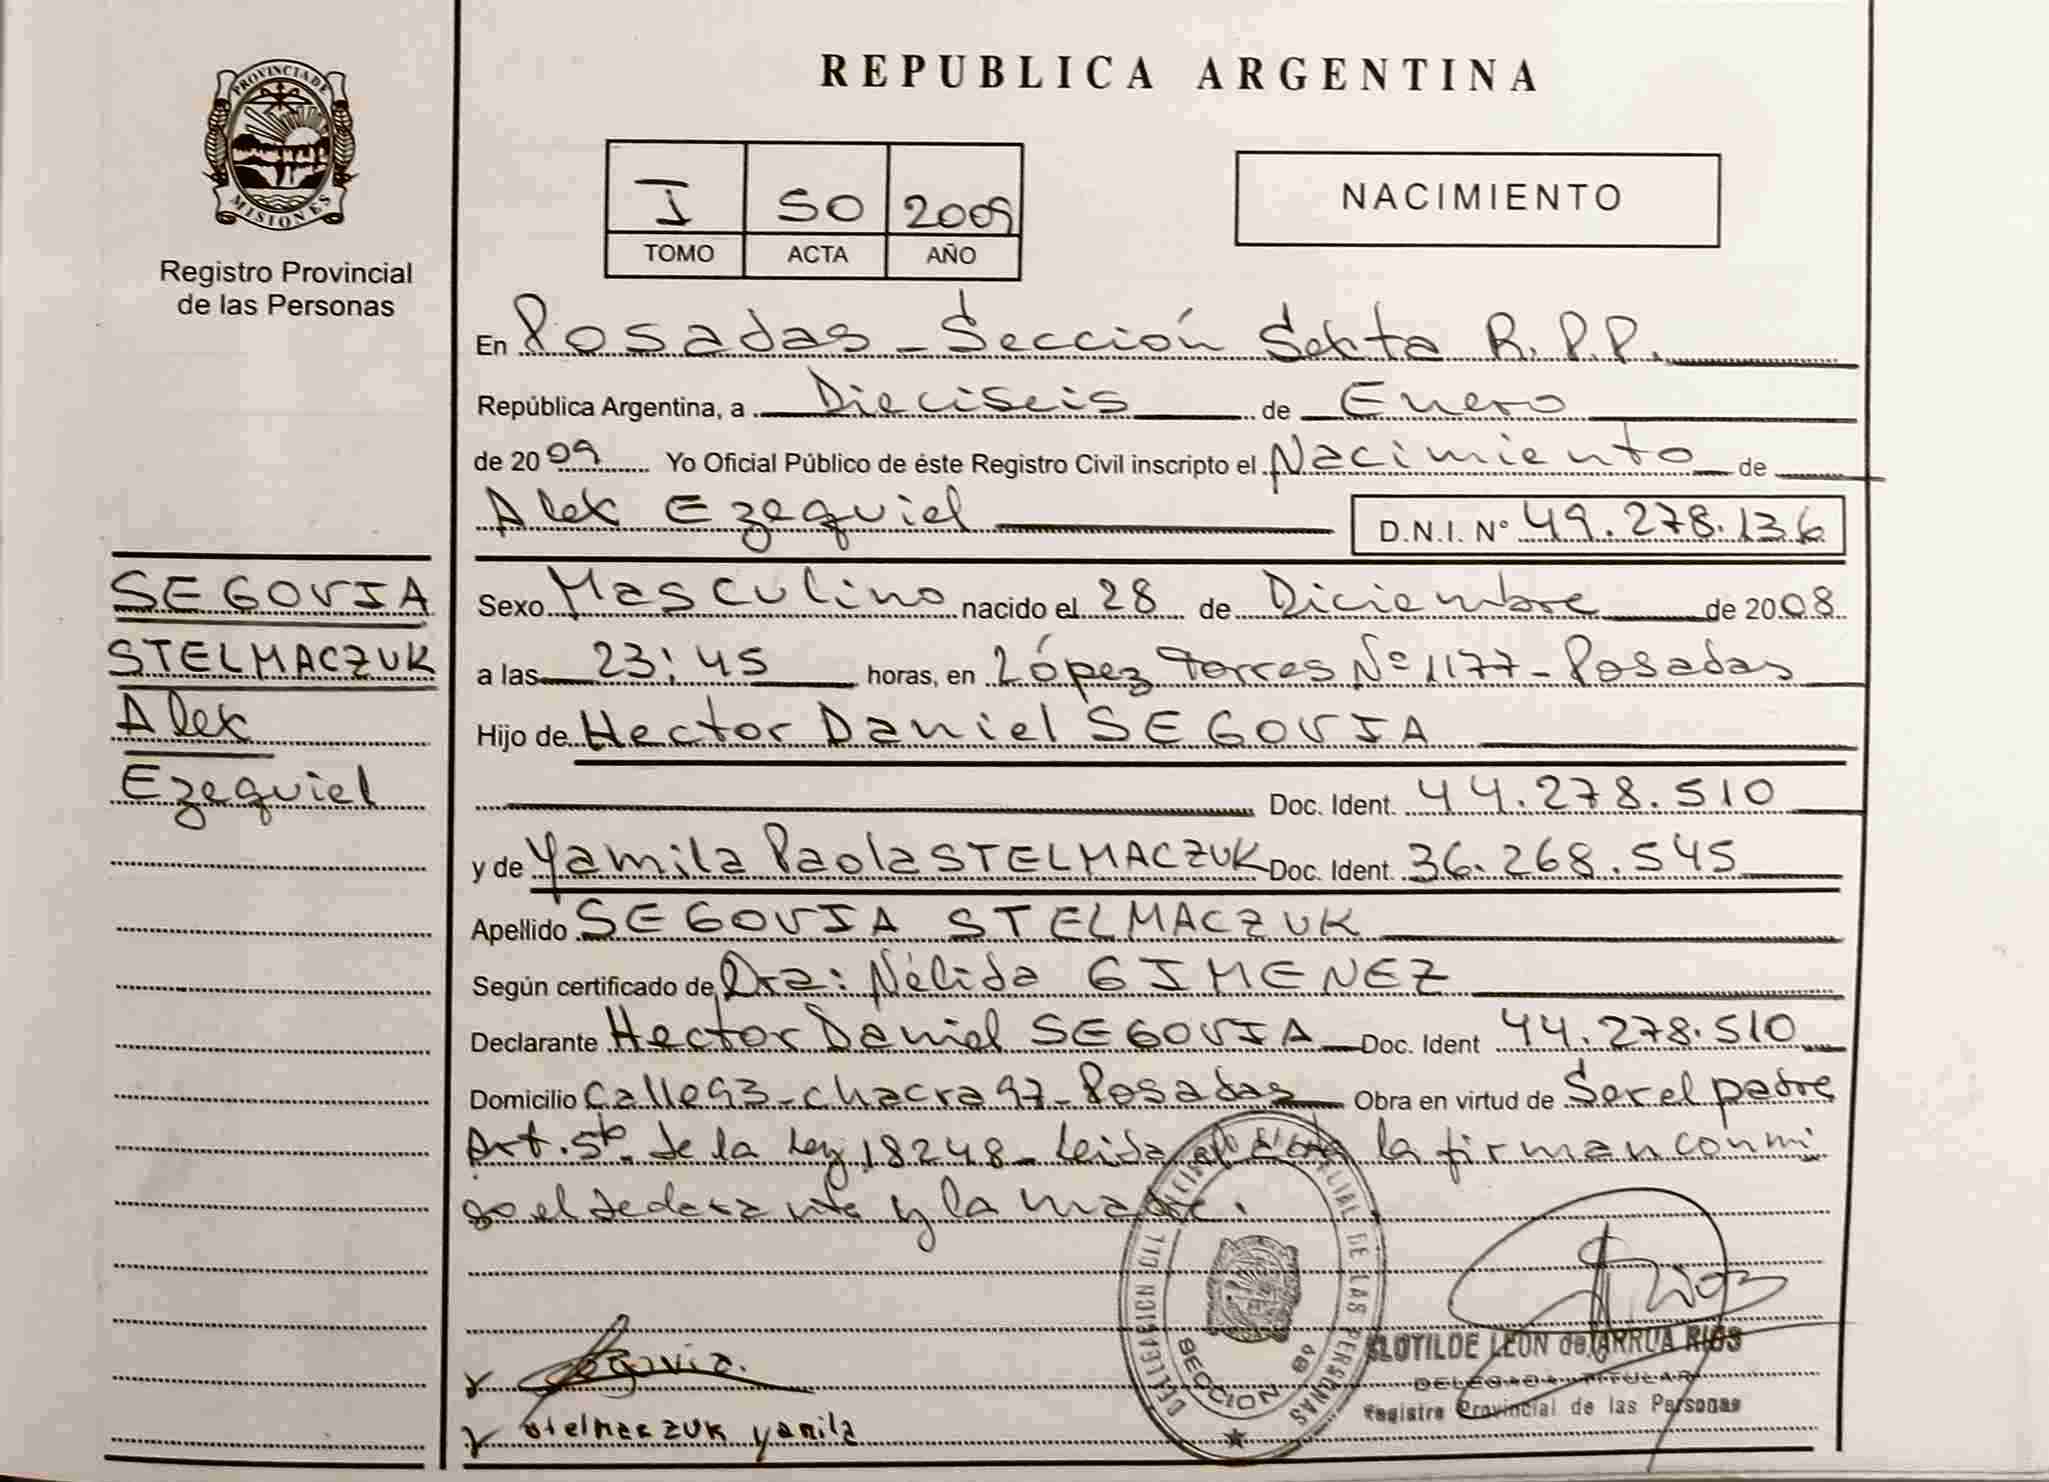 PROVINCIA DE
MISIONES
Registro Provincial
de las Personas
REPUBLICA ARGENTINA
I 50 2009
TOMO ACTA AÑO
NACIMIENTO
En Posadas - Sección Sexta R.P.P.
República Argentina, a Dieciseis de Enero
de 2009 Yo Oficial Público de éste Registro Civil inscripto el Nacimiento de
Alex Ezequiel D.N.I. Nº 49.278.136
SEGOVIA
STELMACZUK
Alex
Ezequiel
Sexo Masculino nacido el 28 de Diciembre de 2008
a las 23:45 horas, en López Torres Nº 1177 - Posadas
Hijo de Hector Daniel SEGOVIA
Doc. Ident. 44.278.510
y de Yamila Paola STELMACZUK Doc. Ident. 36.268.545
Apellido SEGOVIA STELMACZUK
Según certificado de Dra: Nélida GIMENEZ
Declarante Hector Daniel SEGOVIA Doc. Ident 44.278.510
Domicilio Calle 93 - chacra 97 - Posadas Obra en virtud de Ser el padre
Art. 5to. de la Ley 18248 - Leida el Acta la firman conmi
go el declarante y la madre.
DELEGACION DEL REGISTRO PROVINCIAL DE LAS PERSONAS
SECCION 6ª
Segovia.
Stelmaczuk yamila
CLOTILDE LEON de ARRUA RIOS
DELEGADA TITULAR
Registro Provincial de las Personas